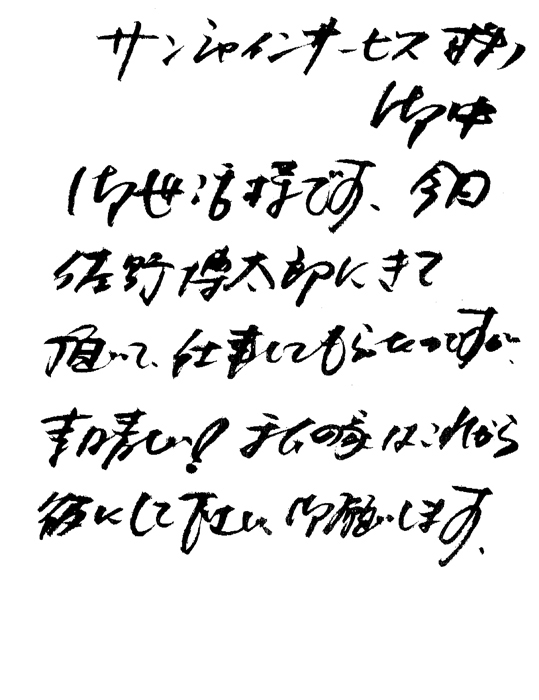 サンシャインサービス 様
御中
御世話様です、今日
佐野博太郎にきて
頂いて、仕事してもらったのですが、
素晴しい! 私の家はこれから
彼にして下さい、御願いします、